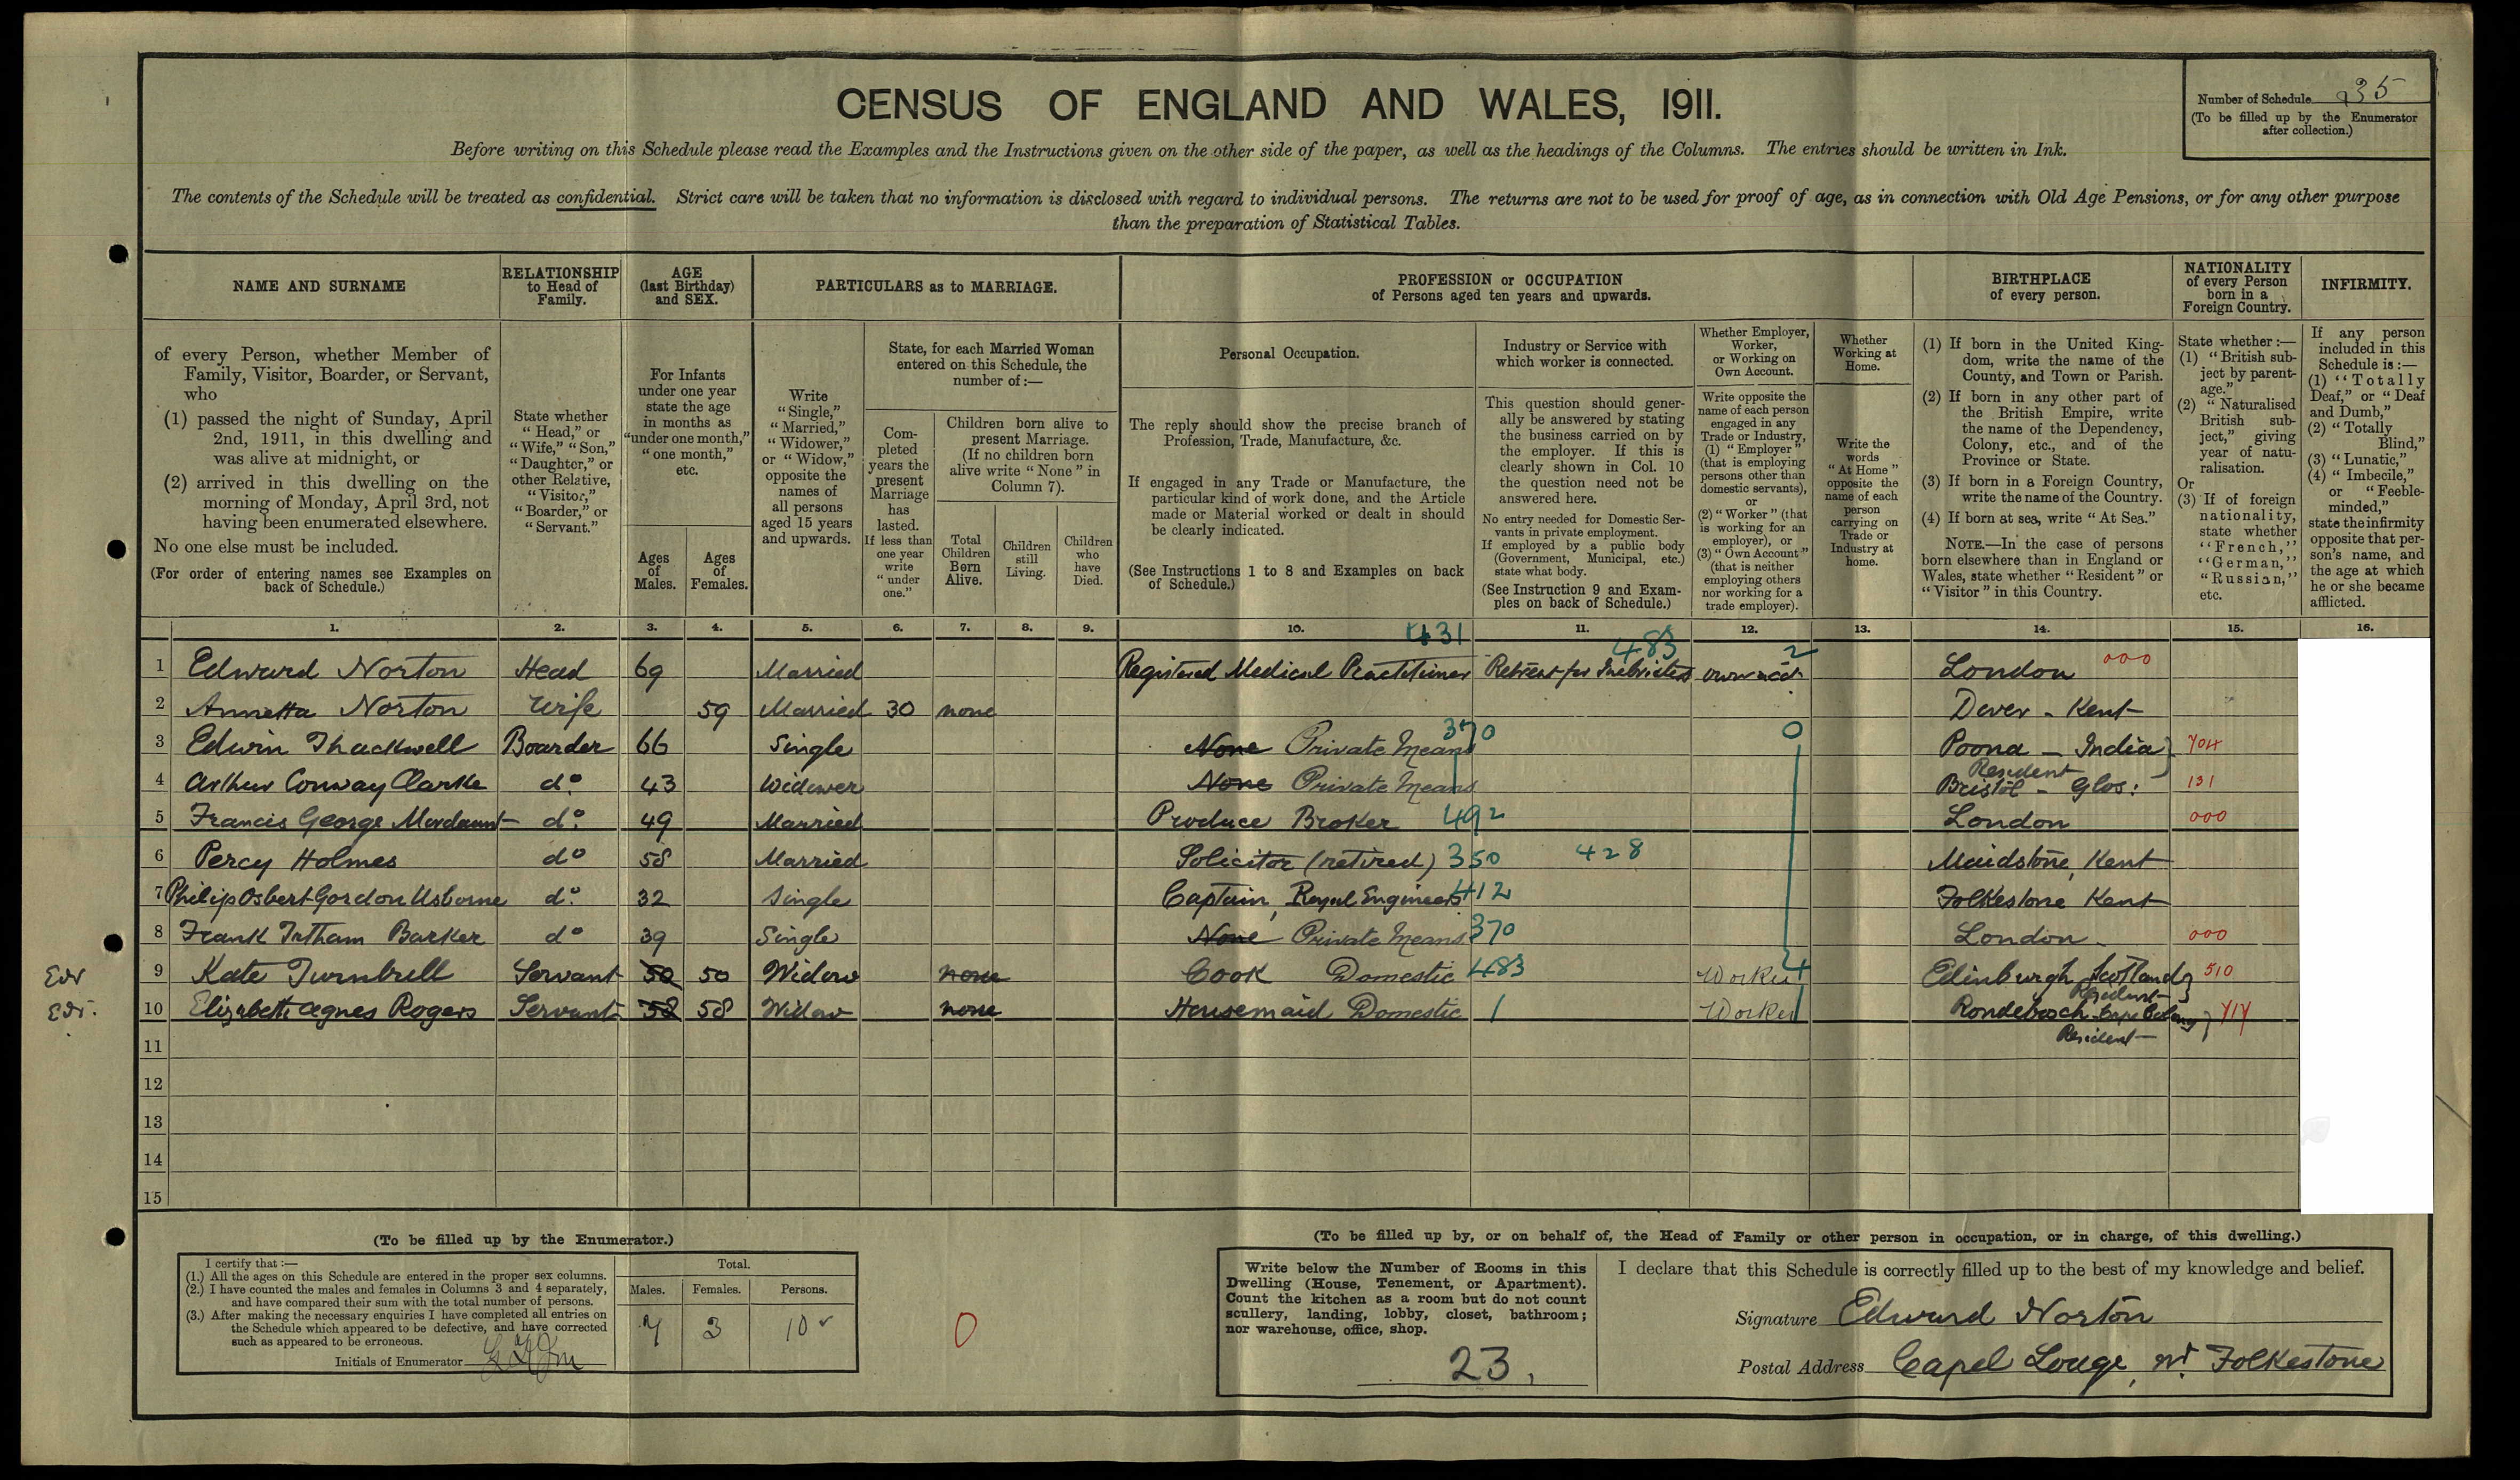 CENSUS OF ENGLAND AND WALES, 1911.
Number of Schedule 235
(To be filled up by the Enumerator
after collection.)
Before writing on this Schedule please read the Examples and the Instructions given on the other side of the paper, as well as the headings of the Columns. The entries should be written in Ink.
The contents of the Schedule will be treated as confidential. Strict care will be taken that no information is disclosed with regard to individual persons. The returns are not to be used for proof of age, as in connection with Old Age Pensions, or for any other purpose
than the preparation of Statistical Tables.
NAME AND SURNAME
of every Person, whether Member of
Family, Visitor, Boarder, or Servant,
who
(1) passed the night of Sunday, April
2nd, 1911, in this dwelling and
was alive at midnight, or
(2) arrived in this dwelling on the
morning of Monday, April 3rd, not
having been enumerated elsewhere.
No one else must be included.
(For order of entering names see Examples on
back of Schedule.)
RELATIONSHIP
to Head of
Family.
State whether
"Head," or
"Wife," "Son,"
"Daughter," or
other Relative,
"Visitor,"
"Boarder," or
"Servant."
AGE
(last Birthday)
and SEX.
For Infants
under one year
state the age
in months as
"under one month,"
"one month,"
etc.
Ages
of
Males.
Ages
of
Females.
PARTICULARS as to MARRIAGE.
Write
"Single,"
"Married,"
"Widower,"
or "Widow,"
opposite the
names of
all persons
aged 15 years
and upwards.
State, for each Married Woman
entered on this Schedule, the
number of:—
Com-
pleted
years the
present
Marriage
has
lasted.
If less than
one year
write
"under
one."
Children born alive to
present Marriage.
(If no children born
alive write "None" in
Column 7).
Total
Children
Born
Alive.
Children
still
Living.
Children
who
have
Died.
PROFESSION or OCCUPATION
of Persons aged ten years and upwards.
Personal Occupation.
The reply should show the precise branch of
Profession, Trade, Manufacture, &c.
If engaged in any Trade or Manufacture, the
particular kind of work done, and the Article
made or Material worked or dealt in should
be clearly indicated.
(See Instructions 1 to 8 and Examples on back
of Schedule.)
Industry or Service with
which worker is connected.
This question should gener-
ally be answered by stating
the business carried on by
the employer. If this is
clearly shown in Col. 10
the question need not be
answered here.
No entry needed for Domestic Ser-
vants in private employment.
If employed by a public body
(Government, Municipal, etc.)
state what body.
(See Instruction 9 and Exam-
ples on back of Schedule.)
Whether Employer,
Worker,
or Working on
Own Account.
Write opposite the
name of each person
engaged in any
Trade or Industry,
(1) "Employer"
(that is employing
persons other than
domestic servants),
or
(2) "Worker" (that
is working for an
employer), or
(3) "Own Account"
(that is neither
employing others
nor working for a
trade employer).
Whether
Working at
Home.
Write the
words
"At Home"
opposite the
name of each
person
carrying on
Trade or
Industry at
home.
BIRTHPLACE
of every person.
(1) If born in the United King-
dom, write the name of the
County, and Town or Parish.
(2) If born in any other part of
the British Empire, write
the name of the Dependency,
Colony, etc., and of the
Province or State.
(3) If born in a Foreign Country,
write the name of the Country.
(4) If born at sea, write "At Sea."
NOTE.—In the case of persons
born elsewhere than in England or
Wales, state whether "Resident" or
"Visitor" in this Country.
NATIONALITY
of every Person
born in a
Foreign Country.
State whether:—
(1) "British sub-
ject by parent-
age."
(2) "Naturalised
British sub-
ject," giving
year of natu-
ralisation.
Or
(3) If of foreign
nationality,
state whether
"French,"
"German,"
"Russian,"
etc.
INFIRMITY.
If any person
included in this
Schedule is:—
(1) "Totally
Deaf," or "Deaf
and Dumb,"
(2) "Totally
Blind,"
(3) "Lunatic,"
(4) "Imbecile,"
or "Feeble-
minded,"
state the infirmity
opposite that per-
son's name, and
the age at which
he or she became
afflicted.
1. 2. 3. 4. 5. 6. 7. 8. 9. 10. 11. 12. 13. 14. 15. 16.
431 483 2
1 Edward Norton Head 69 Married Registered Medical Practitioner Retreat for Inebriates own acct London 000
2 Annetta Norton Wife 59 Married 30 none Dover - Kent
3 Edwin Thackwell Boarder 66 Single None Private Means 370 0 Poona - India 704
Resident
4 Arthur Conway Clarke do 43 Widower None Private Means Bristol - Glos: 131
5 Francis George Mordaunt do 49 Married Produce Broker 492 London 000
6 Percy Holmes do 58 Married Solicitor (retired) 350 428 Maidstone, Kent
7 Philip Osbert Gordon Usborne do 32 Single Captain, Royal Engineers 412 Folkestone Kent
8 Frank Tatham Barker do 39 Single None Private Means 370 London - 000
Edr 9 Kate Turnbull Servant 50 50 Widow none Cook Domestic 483 Worker 4 Edinburgh Scotland 510
Resident
Edr. 10 Elizabeth Agnes Rogers Servant 58 58 Widow none Housemaid Domestic 1 Worker Rondebosch - Cape Colony 717
Resident
11
12
13
14
15
(To be filled up by the Enumerator.)
I certify that:—
(1.) All the ages on this Schedule are entered in the proper sex columns.
(2.) I have counted the males and females in Columns 3 and 4 separately,
and have compared their sum with the total number of persons.
(3.) After making the necessary enquiries I have completed all entries on
the Schedule which appeared to be defective, and have corrected
such as appeared to be erroneous.
Initials of Enumerator
Total.
Males. Females. Persons.
7 3 10
0
(To be filled up by, or on behalf of, the Head of Family or other person in occupation, or in charge, of this dwelling.)
Write below the Number of Rooms in this
Dwelling (House, Tenement, or Apartment).
Count the kitchen as a room but do not count
scullery, landing, lobby, closet, bathroom;
nor warehouse, office, shop.
23,
I declare that this Schedule is correctly filled up to the best of my knowledge and belief.
Signature Edward Norton
Postal Address Capel Louge, nr. Folkestone